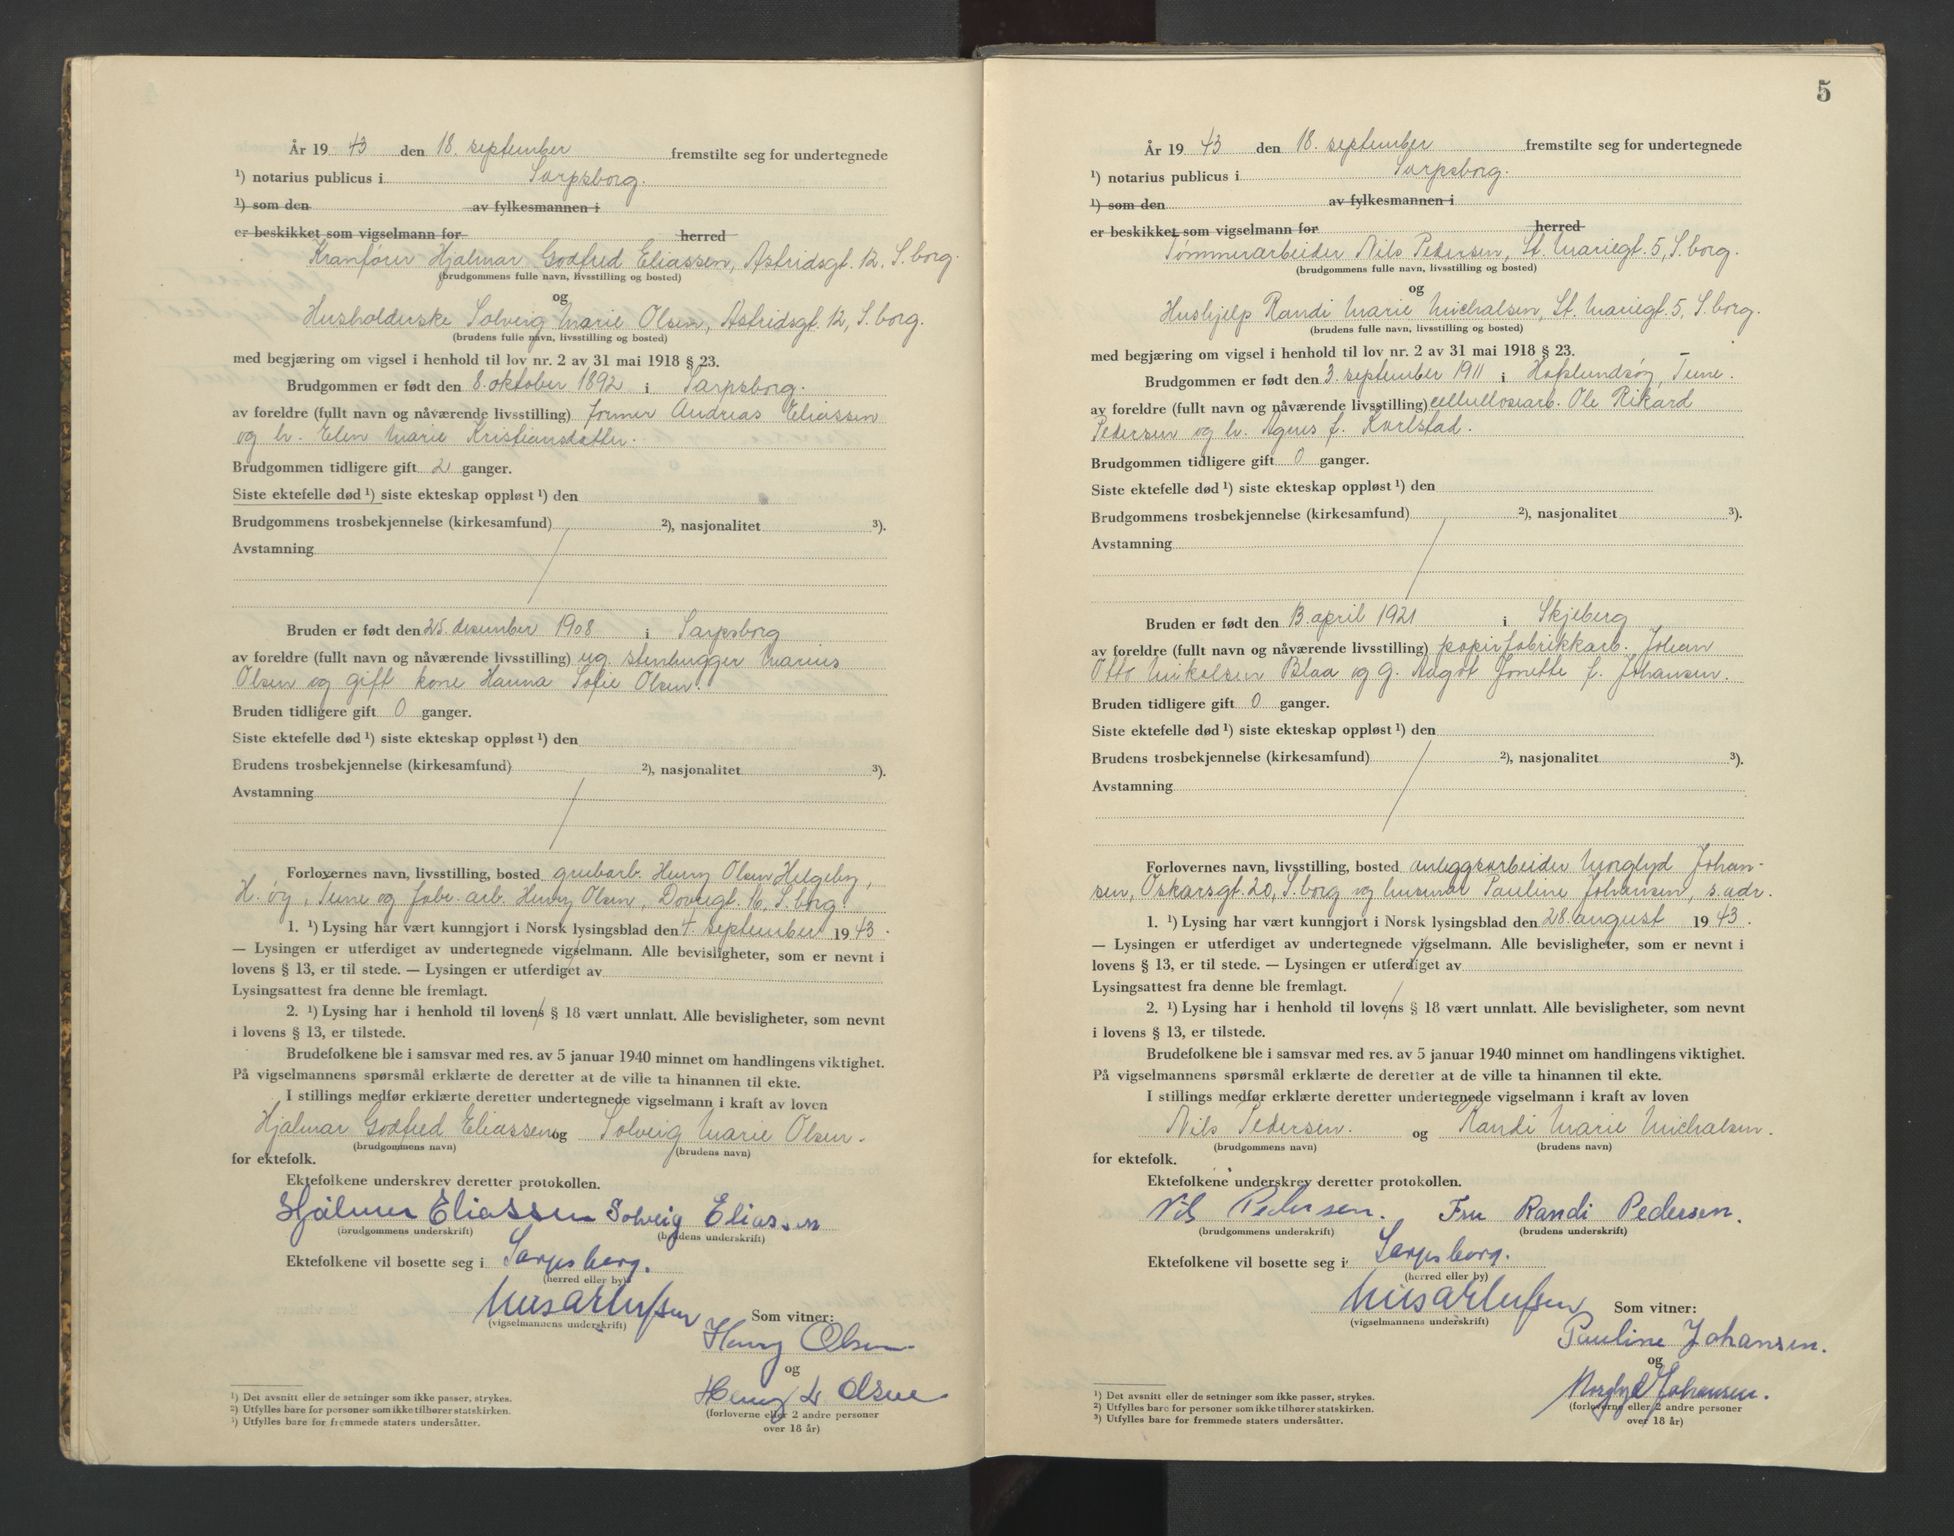 År 19 43 den 18. september fremstilte seg for undertegnede
¹) notarius publicus i Sarpsborg.
¹) som den av fylkesmannen i
er beskikket som vigselmann for herred
Kranfører Hjalmar Godfred Eliassen, Astridsgt. 12, S.borg.
(brudgommens fulle navn, livsstilling og bosted)
og
Husholderske Solveig Marie Olsen, Astridsgt. 12, S.borg.
(brudens fulle navn, livsstilling og bosted)
med begjæring om vigsel i henhold til lov nr. 2 av 31 mai 1918 § 23.
Brudgommen er født den 8. oktober 1892 i Sarpsborg.
av foreldre (fullt navn og nåværende livsstilling) former Andreas Eliassen
og h. Elen Marie Kristiansdatter.
Brudgommen tidligere gift 2 ganger.
Siste ektefelle død ¹) siste ekteskap oppløst ¹) den
Brudgommens trosbekjennelse (kirkesamfund) ²), nasjonalitet ³).
Avstamning
Bruden er født den 25. desember 1908 i Sarpsborg
av foreldre (fullt navn og nåværende livsstilling) ug. stenhugger Marius
Olsen og gift kone Hanna Sofie Olsen.
Bruden tidligere gift 0 ganger.
Siste ektefelle død ¹) siste ekteskap oppløst ¹) den
Brudens trosbekjennelse (kirkesamfund) ²), nasjonalitet ³).
Avstamning
Forlovernes navn, livsstilling, bosted grubarb. Henry Olsen Helgeby,
H. øy, Tune og fabr. arb. Henry Olsen, Dovregt. 16, S.borg.
1. ¹) Lysing har vært kunngjort i Norsk lysingsblad den 4. september 19 43.
— Lysingen er utferdiget av undertegnede vigselmann. Alle bevisligheter, som er nevnt i
lovens § 13, er til stede. — Lysingen er utferdiget av
Lysingsattest fra denne ble fremlagt.
2. ¹) Lysing har i henhold til lovens § 18 vært unnlatt. Alle bevisligheter, som nevnt
i lovens § 13, er tilstede.
Brudefolkene ble i samsvar med res. av 5 januar 1940 minnet om handlingens viktighet.
På vigselmannens spørsmål erklærte de deretter at de ville ta hinannen til ekte.
I stillings medfør erklærte deretter undertegnede vigselmann i kraft av loven
Hjalmar Godfred Eliassen og Solveig Marie Olsen.
(brudgommens navn) (brudens navn)
for ektefolk.
Ektefolkene underskrev deretter protokollen.
Hjalmer Eliassen Solveig Eliassen
(brudgommens underskrift) (brudens underskrift)
Ektefolkene vil bosette seg i Sarpsborg.
(herred eller by)
(vigselmannens underskrift) Som vitner:
Henry Olsen.
og
Henry Olsen
(forloverne eller 2 andre personer
over 18 år)
¹) Det avsnitt eller de setninger som ikke passer, strykes.
²) Utfylles bare for personer som ikke tilhører statskirken.
³) Utfylles bare for fremmede staters undersåtter.
5
År 19 43 den 18. september fremstilte seg for undertegnede
¹) notarius publicus i Sarpsborg.
¹) som den av fylkesmannen i
er beskikket som vigselmann for herred
Tømmerarbeider Nils Pedersen, St. Mariegt. 5, S.borg.
(brudgommens fulle navn, livsstilling og bosted)
og
Hushjelp Randi Marie Michalsen, St. Mariegt. 5, S.borg.
(brudens fulle navn, livsstilling og bosted)
med begjæring om vigsel i henhold til lov nr. 2 av 31 mai 1918 § 23.
Brudgommen er født den 3. september 1911 i Hafslundsøy, Tune.
av foreldre (fullt navn og nåværende livsstilling) cellulosearb. Ole Rikard
Pedersen og h. Agnes f. Karlstad.
Brudgommen tidligere gift 0 ganger.
Siste ektefelle død ¹) siste ekteskap oppløst ¹) den
Brudgommens trosbekjennelse (kirkesamfund) ²), nasjonalitet ³).
Avstamning
Bruden er født den 13. april 1921 i Skjeberg
av foreldre (fullt navn og nåværende livsstilling) papirfabrikkarb. Johan
Otto Mikalsen Blaa og g. Aagot Jonette f. Johansen.
Bruden tidligere gift 0 ganger.
Siste ektefelle død ¹) siste ekteskap oppløst ¹) den
Brudens trosbekjennelse (kirkesamfund) ²), nasjonalitet ³).
Avstamning
Forlovernes navn, livsstilling, bosted anleggsarbeider Norglyd Johan-
sen, Oskarsgt. 20, S.borg og husmor Pauline Johansen, s. adr.
1. ¹) Lysing har vært kunngjort i Norsk lysingsblad den 28. august 19 43.
— Lysingen er utferdiget av undertegnede vigselmann. Alle bevisligheter, som er nevnt i
lovens § 13, er til stede. — Lysingen er utferdiget av
Lysingsattest fra denne ble fremlagt.
2. ¹) Lysing har i henhold til lovens § 18 vært unnlatt. Alle bevisligheter, som nevnt
i lovens § 13, er tilstede.
Brudefolkene ble i samsvar med res. av 5 januar 1940 minnet om handlingens viktighet.
På vigselmannens spørsmål erklærte de deretter at de ville ta hinannen til ekte.
I stillings medfør erklærte deretter undertegnede vigselmann i kraft av loven
Nils Pedersen. og Randi Marie Michalsen.
(brudgommens navn) (brudens navn)
for ektefolk.
Ektefolkene underskrev deretter protokollen.
Nils Pedersen. Fru Randi Pedersen.
(brudgommens underskrift) (brudens underskrift)
Ektefolkene vil bosette seg i Sarpsborg.
(herred eller by)
(vigselmannens underskrift) Som vitner:
Pauline Johansen.
og
Norglyd Johansen.
(forloverne eller 2 andre personer
over 18 år)
¹) Det avsnitt eller de setninger som ikke passer, strykes.
²) Utfylles bare for personer som ikke tilhører statskirken.
³) Utfylles bare for fremmede staters undersåtter.